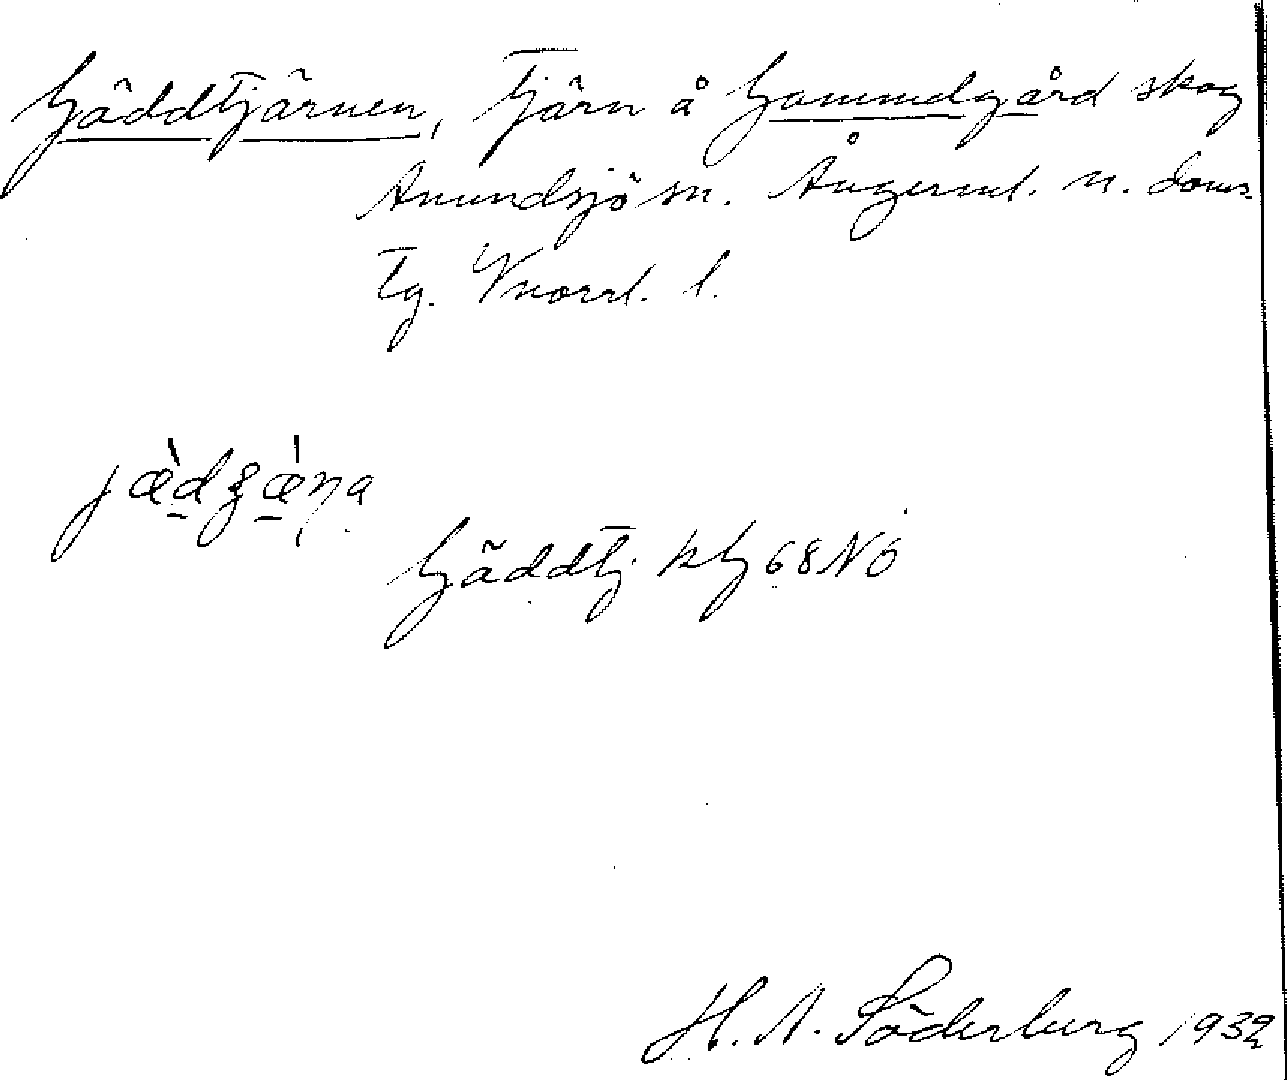 Gäddtjärnen, Tjärn å Gammelgård skog
Anundsjö sn. Ångerml. n. doms.
Tg. Vnorrl. l.
Gäddtj. kg 68 NÖ
H. A. Söderberg 1932